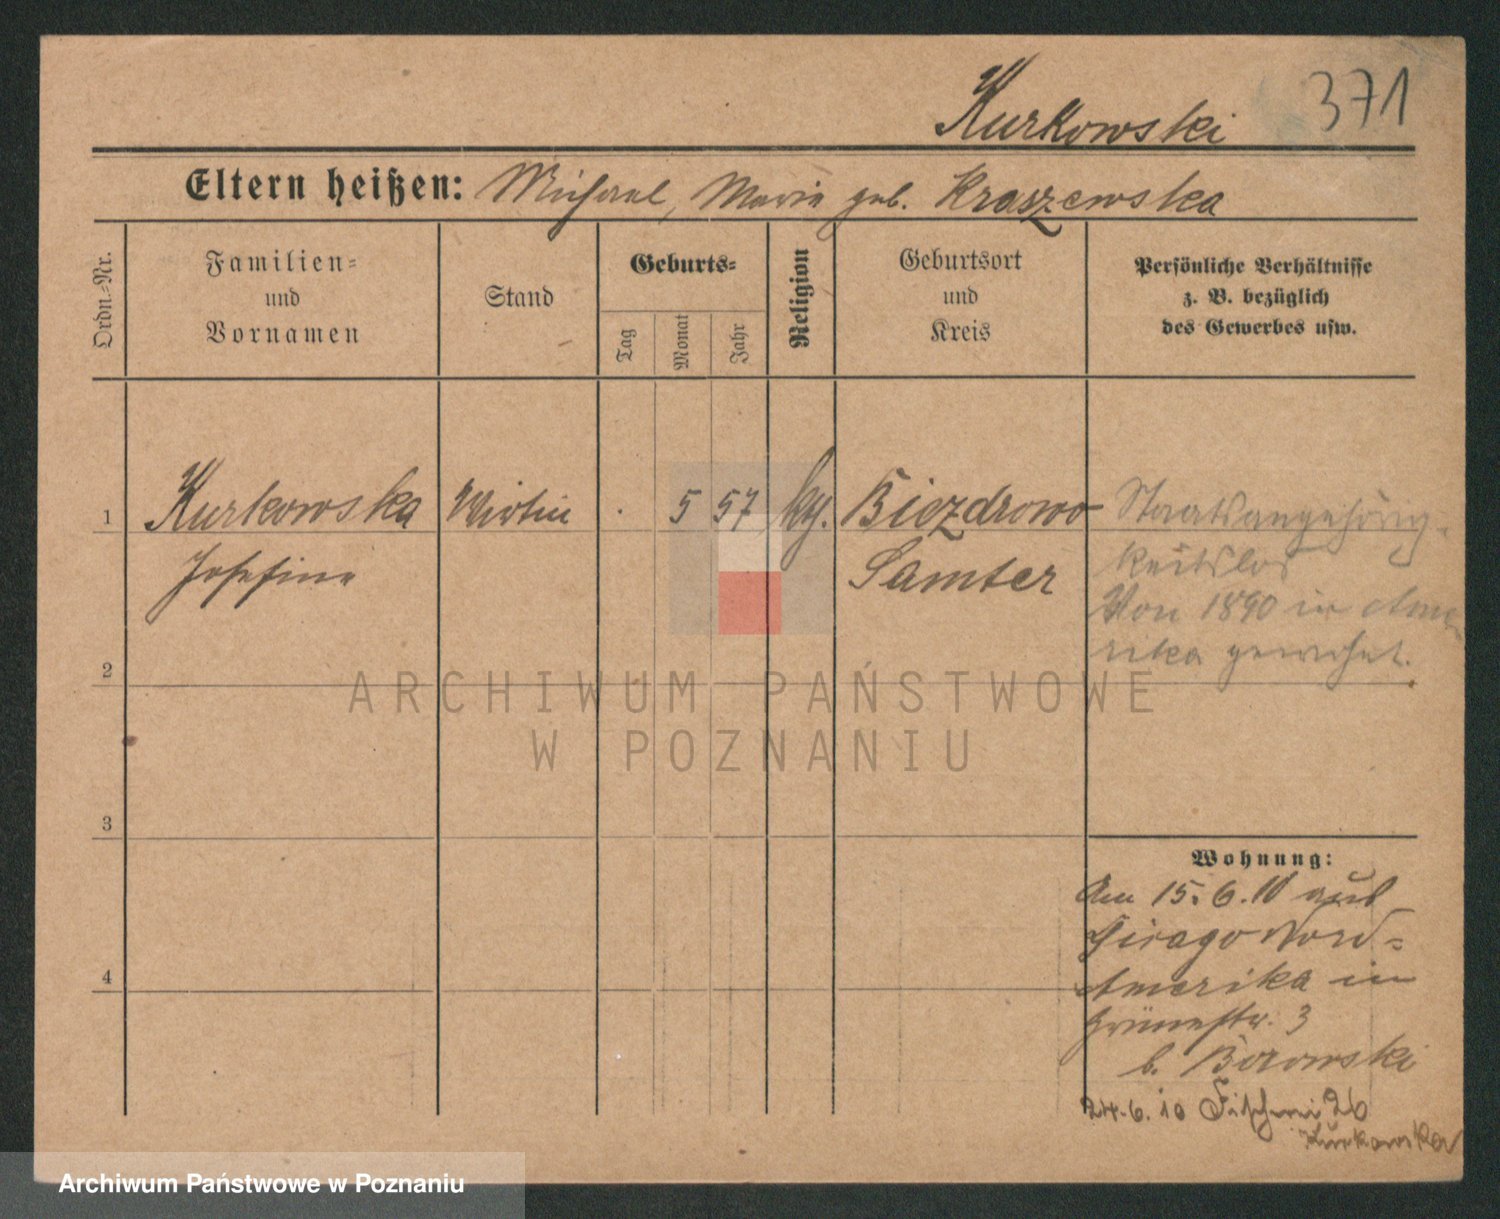 Kurkowski 371
Eltern heißen: Michael, Marie geb. Kraszewska
Ordn.-Nr.
Familien-
und
Vornamen
Stand
Geburts-
Tag
Monat
Jahr
Religion
Geburtsort
und
Kreis
Persönliche Verhältnisse
z. B. bezüglich
des Gewerbes usw.
1 Kurkowska Wirtin . 5 57 Biezdrowo
Josefine Samter
Staatsangehörig-
keitslos
Von 1890 in Ame
rika gewohnt.
2
3
4
ARCHIWUM PAŃSTWOWE
W POZNANIU
Wohnung:
Am 15.6.10 aus
Chicago Nord-
Amerika in
Grünestr. 3
b. Borowski
24.6.10 Fischerei 26
Kurkowska
Archiwum Państwowe w Poznaniu